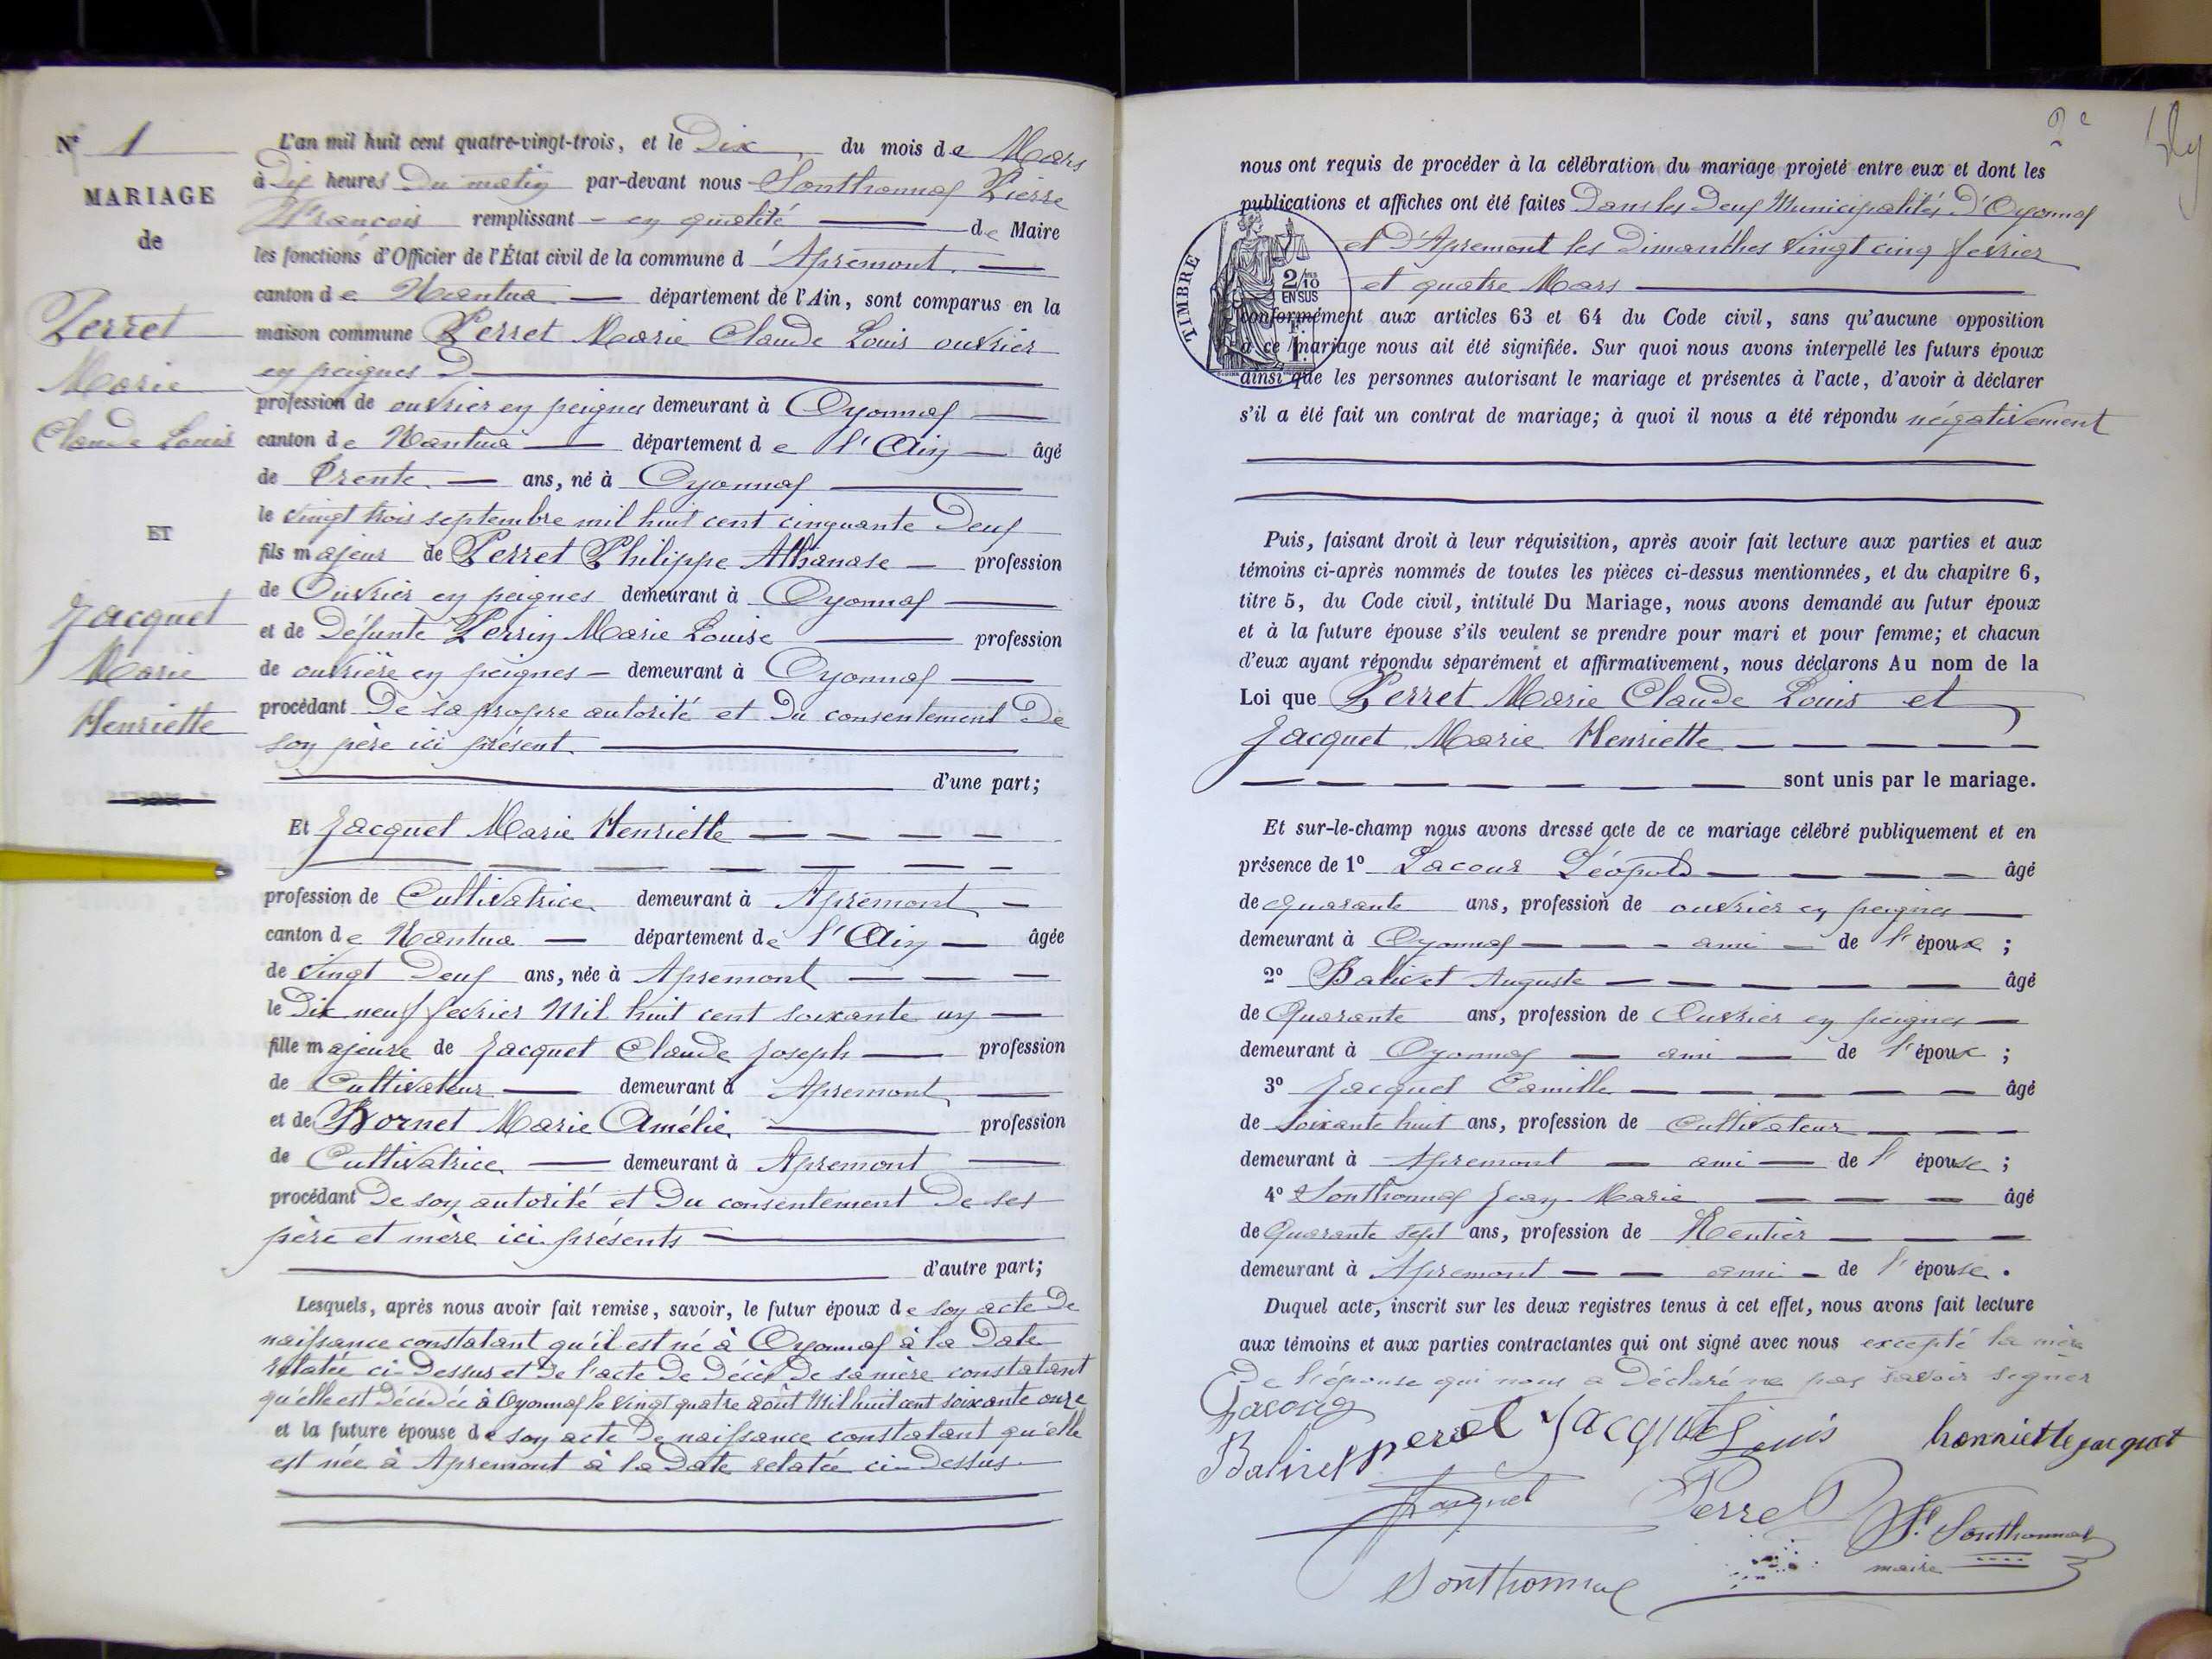 N° 1
MARIAGE
de
Perret
Marie
Claude Louis
ET
Jacquet
Marie
Henriette
L'an mil huit cent quatre-vingt-trois, et le Dix du mois de Mars
à Dix heures Du matin par-devant nous Sonthonnax Pierre
François remplissant en qualité de Maire
les fonctions d'Officier de l'État civil de la commune d'Apremont
canton de Nantua département de l'Ain, sont comparus en la
maison commune Perret Marie Claude Louis ouvrier
en peignes
profession de ouvrier en peignes demeurant à Oyonnax
canton de Nantua département de l'Ain âgé
de trente ans, né à Oyonnax
le vingt trois septembre mil huit cent cinquante Deux
fils majeur de Perret Philippe Athanase profession
de Ouvrier en peignes demeurant à Oyonnax
et de Défunte Perrin Marie Louise profession
de ouvrière en peignes demeurant à Oyonnax
procédant De sa propre autorité et Du consentement De
son père ici présent
d'une part;
Et Jacquet Marie Henriette
profession de Cultivatrice demeurant à Apremont
canton de Nantua département de l'Ain âgée
de vingt Deux ans, née à Apremont
le Dix neuf fevrier Mil huit cent soixante un
fille majeure de Jacquet Claude Joseph profession
de Cultivateur demeurant à Apremont
et de Bornet Marie Amélie profession
de Cultivatrice demeurant à Apremont
procédant De son autorité et Du consentement De ses
père et mère ici présents
d'autre part;
Lesquels, après nous avoir fait remise, savoir, le futur époux de son acte De
naissance constatant qu'il est né à Oyonnax à la Date
relatée ci-Dessus et De l'acte De Décès De sa mère constatant
qu'elle est Décédée à Oyonnax le vingt quatre août Mil huit cent soixante onze
et la future épouse de son acte De naissance constatant qu'elle
est née à Apremont à la Date relatée ci-Dessus
2e
nous ont requis de procéder à la célébration du mariage projeté entre eux et dont les
publications et affiches ont été faites Dans les Deux Municipalités D'Oyonnax
et D'Apremont les Dimanches vingt cinq fevrier
et quatre Mars
TIMBRE
2/10
EN SUS
conformément aux articles 63 et 64 du Code civil, sans qu'aucune opposition
à ce mariage nous ait été signifiée. Sur quoi nous avons interpellé les futurs époux
ainsi que les personnes autorisant le mariage et présentes à l'acte, d'avoir à déclarer
s'il a été fait un contrat de mariage; à quoi il nous a été répondu négativement
Puis, faisant droit à leur réquisition, après avoir fait lecture aux parties et aux
témoins ci-après nommés de toutes les pièces ci-dessus mentionnées, et du chapitre 6,
titre 5, du Code civil, intitulé Du Mariage, nous avons demandé au futur époux
et à la future épouse s'ils veulent se prendre pour mari et pour femme; et chacun
d'eux ayant répondu séparément et affirmativement, nous déclarons Au nom de la
Loi que Perret Marie Claude Louis et
Jacquet Marie Henriette
sont unis par le mariage.
Et sur-le-champ nous avons dressé acte de ce mariage célébré publiquement et en
présence de 1° Lacour Léopold âgé
de quarante ans, profession de ouvrier en peignes
demeurant à Oyonnax ami de l'époux ;
2° Balivet Auguste âgé
de Quarante ans, profession de Ouvrier en peignes
demeurant à Oyonnax ami de l'époux ;
3° Jacquet Camille âgé
de soixante huit ans, profession de Cultivateur
demeurant à Apremont ami de l'épouse ;
4° Sonthonnax Jean Marie âgé
de Quarante sept ans, profession de Rentier
demeurant à Apremont ami de l'épouse.
Duquel acte, inscrit sur les deux registres tenus à cet effet, nous avons fait lecture
aux témoins et aux parties contractantes qui ont signé avec nous excepté la mère
De l'épouse qui nous a Déclaré ne pas savoir signer
Balivet peret Jacquet Louis henriette jacquet
Jacquet Perret P. Sonthonnax
maire
Sonthonnax